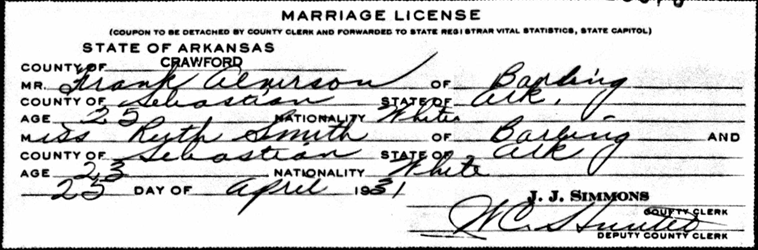 MARRIAGE LICENSE
(COUPON TO BE DETACHED BY COUNTY CLERK AND FORWARDED TO STATE REGISTRAR VITAL STATISTICS, STATE CAPITOL)
STATE OF ARKANSAS
COUNTY OF CRAWFORD
MR. Frank Alverson OF Barling
COUNTY OF Sebastian STATE OF Ark.
AGE 25 NATIONALITY White
Miss Ruth Smith OF Barling AND
COUNTY OF Sebastian STATE OF Ark
AGE 23 NATIONALITY White
25 DAY OF April 1931
J. J. SIMMONS
COUNTY CLERK
WC Hunter
DEPUTY COUNTY CLERK